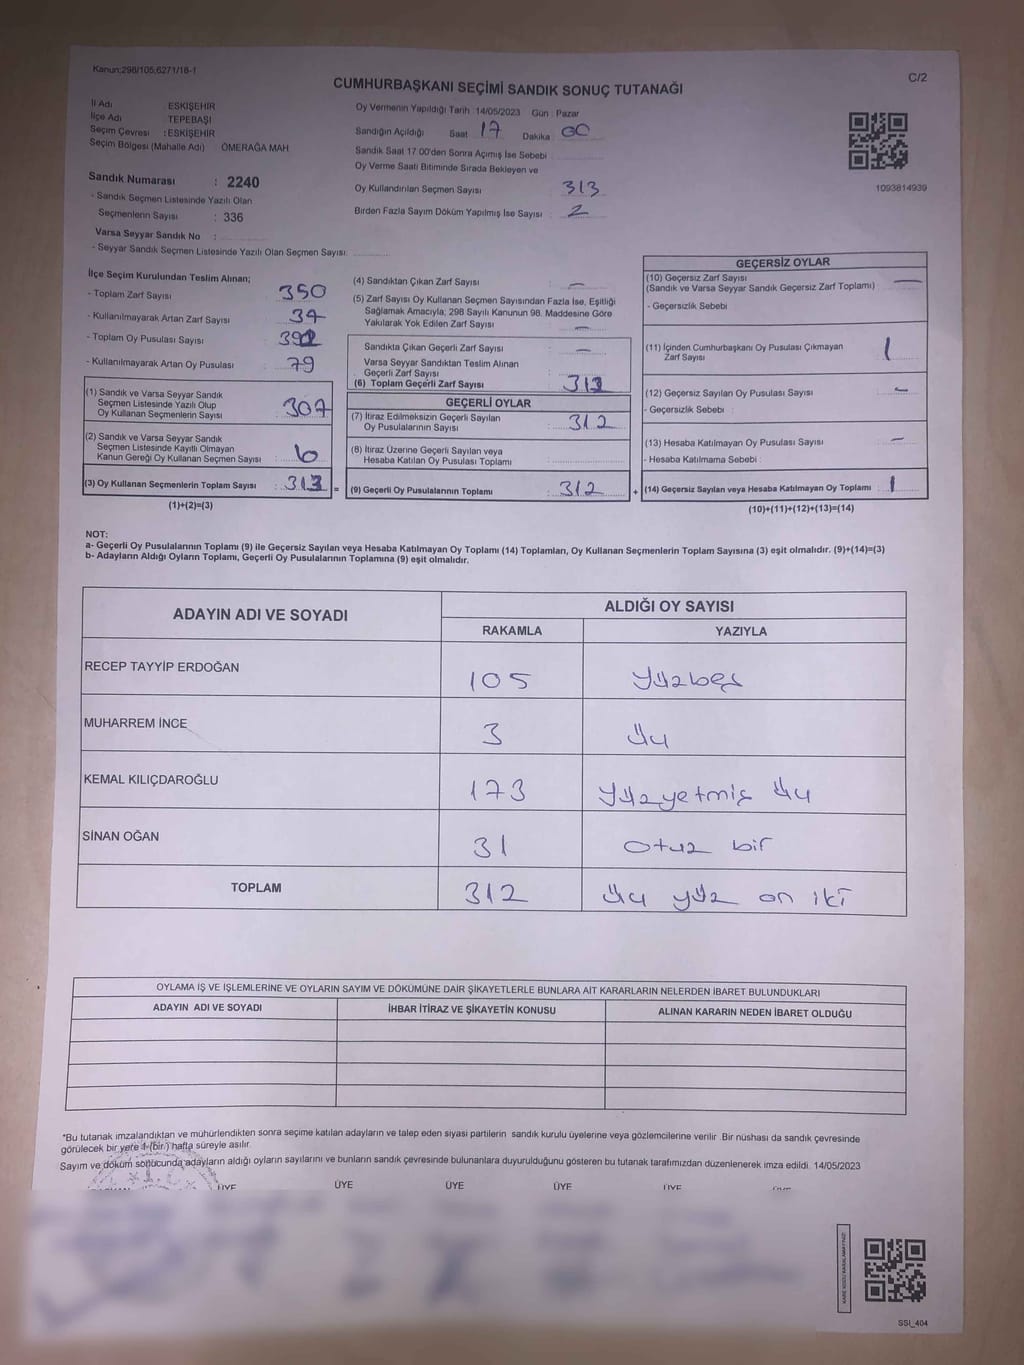 Kanun:298/105;6271/18-1
C/2
CUMHURBAŞKANI SEÇİMİ SANDIK SONUÇ TUTANAĞI
İl Adı ESKİŞEHİR
İlçe Adı TEPEBAŞI
Seçim Çevresi : ESKİŞEHİR
Seçim Bölgesi (Mahalle Adı) ÖMERAĞA MAH
Sandık Numarası : 2240
- Sandık Seçmen Listesinde Yazılı Olan
Seçmenlerin Sayısı : 336
Varsa Seyyar Sandık No :
- Seyyar Sandık Seçmen Listesinde Yazılı Olan Seçmen Sayısı:
Oy Vermenin Yapıldığı Tarih : 14/05/2023 Gün : Pazar
Sandığın Açıldığı Saat 17 Dakika 00
Sandık Saat 17:00'den Sonra Açımış İse Sebebi
Oy Verme Saati Bitiminde Sırada Bekleyen ve
Oy Kullandırılan Seçmen Sayısı 313
Birden Fazla Sayım Döküm Yapılmış İse Sayısı : 2
1093814939
İlçe Seçim Kurulundan Teslim Alınan;
- Toplam Zarf Sayısı : 350
- Kullanılmayarak Artan Zarf Sayısı : 37
- Toplam Oy Pusulası Sayısı
- Kullanılmayarak Artan Oy Pusulası : 79
(1) Sandık ve Varsa Seyyar Sandık
Seçmen Listesinde Yazılı Olup
Oy Kullanan Seçmenlerin Sayısı : 307
(2) Sandık ve Varsa Seyyar Sandık
Seçmen Listesinde Kayıtlı Olmayan
Kanun Gereği Oy Kullanan Seçmen Sayısı : 6
(3) Oy Kullanan Seçmenlerin Toplam Sayısı : 313 =
(1)+(2)=(3)
(4) Sandıktan Çıkan Zarf Sayısı : —
(5) Zarf Sayısı Oy Kullanan Seçmen Sayısından Fazla İse, Eşitliği
Sağlamak Amacıyla; 298 Sayılı Kanunun 98. Maddesine Göre
Yakılarak Yok Edilen Zarf Sayısı : —
Sandıkta Çıkan Geçerli Zarf Sayısı : —
Varsa Seyyar Sandıktan Teslim Alınan
Geçerli Zarf Sayısı
(6) Toplam Geçerli Zarf Sayısı : 313
GEÇERLİ OYLAR
(7) İtiraz Edilmeksizin Geçerli Sayılan
Oy Pusulalarının Sayısı : 312
(8) İtiraz Üzerine Geçerli Sayılan veya
Hesaba Katılan Oy Pusulası Toplamı
(9) Geçerli Oy Pusulalarının Toplamı : 312 +
GEÇERSİZ OYLAR
(10) Geçersiz Zarf Sayısı
(Sandık ve Varsa Seyyar Sandık Geçersiz Zarf Toplamı) : —
- Geçersizlik Sebebi
(11) İçinden Cumhurbaşkanı Oy Pusulası Çıkmayan
Zarf Sayısı 1
(12) Geçersiz Sayılan Oy Pusulası Sayısı : —
- Geçersizlik Sebebi :
(13) Hesaba Katılmayan Oy Pusulası Sayısı : —
- Hesaba Katılmama Sebebi :
(14) Geçersiz Sayılan veya Hesaba Katılmayan Oy Toplamı : 1
(10)+(11)+(12)+(13)=(14)
NOT:
a- Geçerli Oy Pusulalarının Toplamı (9) ile Geçersiz Sayılan veya Hesaba Katılmayan Oy Toplamı (14) Toplamları, Oy Kullanan Seçmenlerin Toplam Sayısına (3) eşit olmalıdır. (9)+(14)=(3)
b- Adayların Aldığı Oyların Toplamı, Geçerli Oy Pusulalarının Toplamına (9) eşit olmalıdır.
ADAYIN ADI VE SOYADI
ALDIĞI OY SAYISI
RAKAMLA YAZIYLA
RECEP TAYYİP ERDOĞAN 105 yüzbeş
MUHARREM İNCE 3 üç
KEMAL KILIÇDAROĞLU 173 yüzyetmiş üç
SİNAN OĞAN 31 otuz bir
TOPLAM 312 üç yüz on iki
OYLAMA İŞ VE İŞLEMLERİNE VE OYLARIN SAYIM VE DÖKÜMÜNE DAİR ŞİKAYETLERLE BUNLARA AİT KARARLARIN NELERDEN İBARET BULUNDUKLARI
ADAYIN ADI VE SOYADI İHBAR İTİRAZ VE ŞİKAYETİN KONUSU ALINAN KARARIN NEDEN İBARET OLDUĞU
*Bu tutanak imzalandıktan ve mühürlendikten sonra seçime katılan adayların ve talep eden siyasi partilerin sandık kurulu üyelerine veya gözlemcilerine verilir. Bir nüshası da sandık çevresinde
görülecek bir yere 1 (bir) hafta süreyle asılır.
Sayım ve döküm sonucunda adayların aldığı oyların sayılarını ve bunların sandık çevresinde bulunanlara duyurulduğunu gösteren bu tutanak tarafımızdan düzenlenerek imza edildi. 14/05/2023
ÜYE ÜYE ÜYE ÜYE ÜYE
KARE KODU KARALAMAYINIZ!
SSI_404